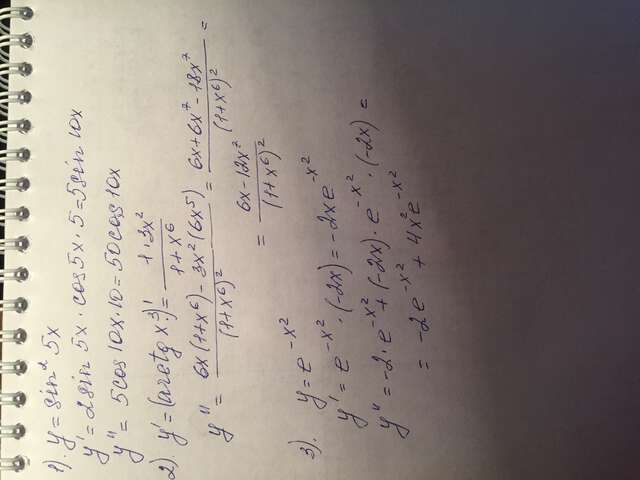 1). y = sin² 5x
y' = 2sin 5x · cos5x · 5 = 5sin 10x
y'' = 5cos 10x · 10 = 50cos 10x
2). y' = (arctg x³)' = \frac{1 · 3x²}{1+x⁶}
y'' = \frac{6x(1+x⁶) - 3x²(6x⁵)}{(1+x⁶)²} = \frac{6x+6x⁷-18x⁷}{(1+x⁶)²} =
= \frac{6x-12x⁷}{(1+x⁶)²}
3). y = e^{-x²}
y' = e^{-x²} · (-2x) = -2xe^{-x²}
y'' = -2 · e^{-x²} + (-2x) · e^{-x²} · (-2x) =
= -2e^{-x²} + 4x²e^{-x²}